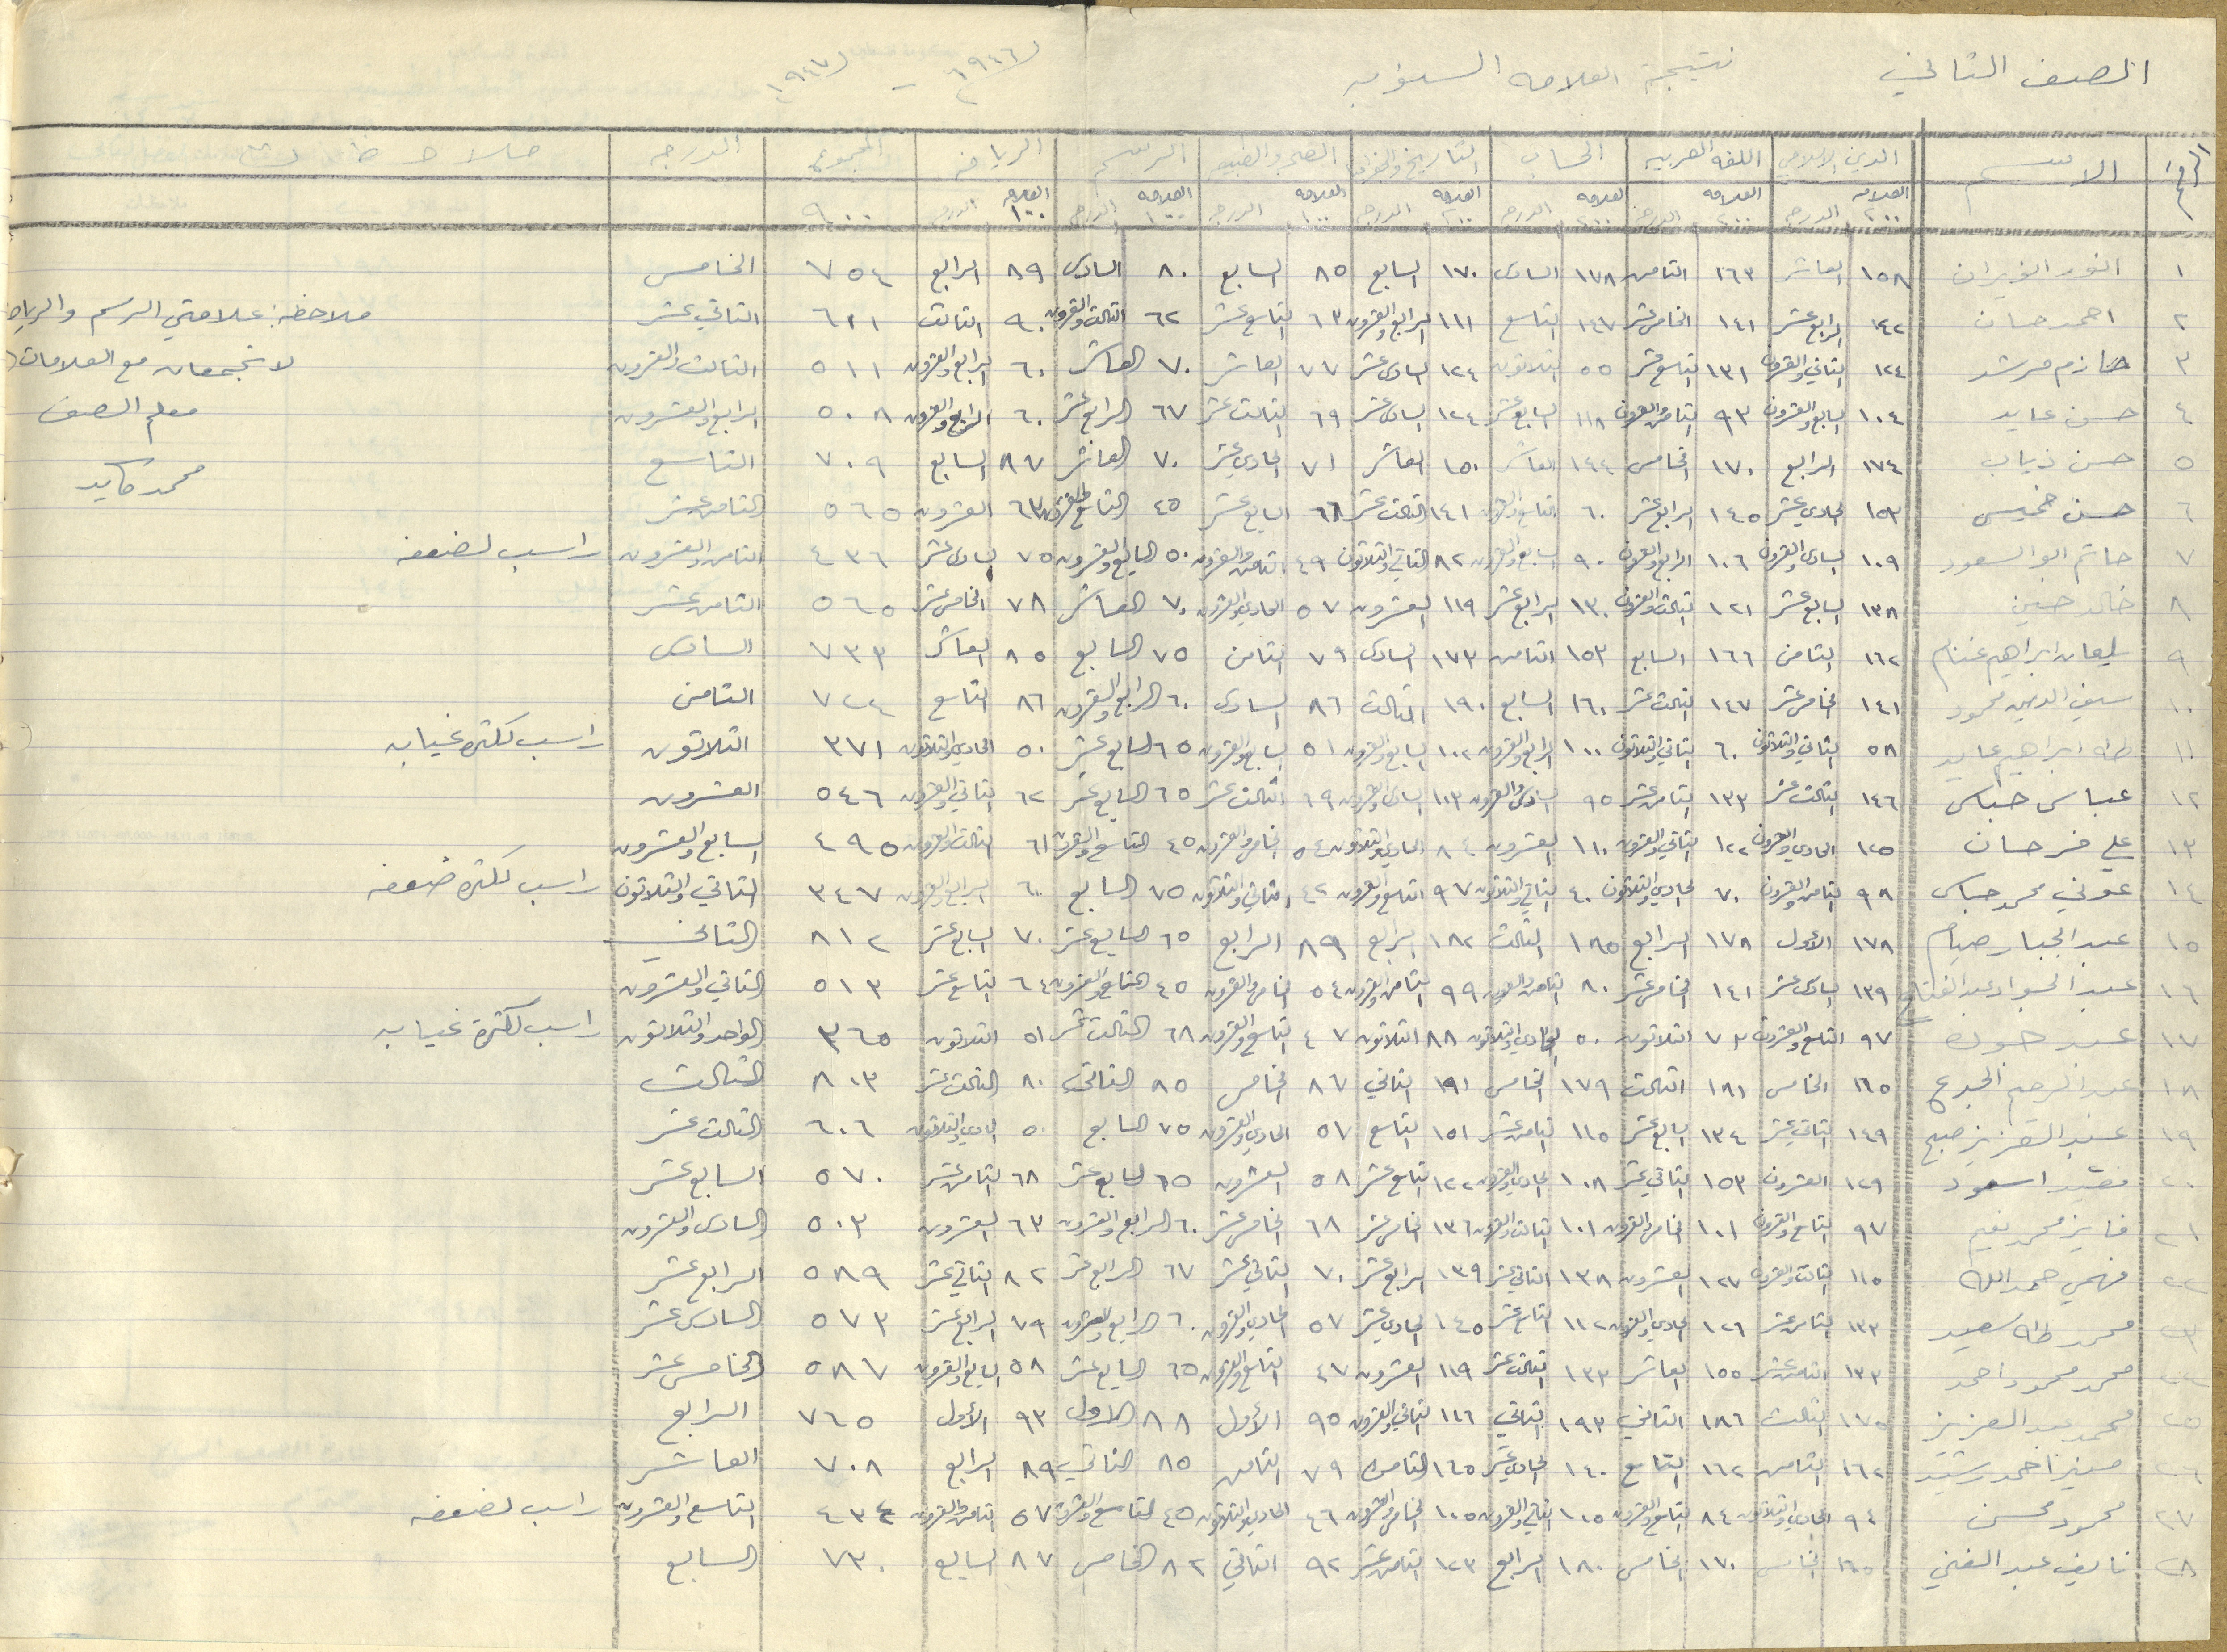 الصف الثاني نتيجة العلامه السنويه ١٩٤٦ - ١٩٤٧
الاسم الدين الاسلامي اللغه العربيه الحساب التاريخ والجغرافيا الصحه والطبيعه الرسم الرياضه المجموع الدرجه ملاحظات
العلامه ٢٠٠ الدرجه العلامه ٢٠٠ الدرجه العلامه ٢٠٠ الدرجه العلامه ٢٠٠ الدرجه العلامه ١٠٠ الدرجه العلامه ١٠٠ الدرجه العلامه ١٠٠ الدرجه ٩٠٠
١ انور الوزيران ١٥٨ العاشر ١٦٣ الثامن ١٧٨ السادس ١٧٠ السابع ٨٥ السابع ٨٠ السادس ٨٩ الرابع ٧٥٤ الخامس
٢ احمد حسان ١٤٢ الرابع عشر ١٤١ الخامس عشر ١٤٧ التاسع ١١١ الرابع والعشرون ٦٣ التاسع عشر ٦٢ الثالث والعشرون ٩٠ الثالث ٦١١ الثاني عشر ملاحظة: علامتي الرسم والرياضه
٣ حازم مرشد ١٢٤ الثاني والعشرون ١٣١ التاسع عشر ٥٥ الثلاثون ١٢٤ السادس عشر ٧٧ العاشر ٧٠ العاشر ٦٠ الرابع والعشرون ٥١١ الثالث والعشرون لا تجمعان مع العلامات
٤ حسن عايد ١٠٤ السابع والعشرون ٩٣ الثامن والعشرون ١١٨ السابع عشر ١٢٤ السادس عشر ٦٩ الثالث عشر ٦٧ الرابع عشر ٦٠ الرابع والعشرون ٥٠٨ الرابع والعشرون معلم الصف
٥ حسن ذياب ١٧٤ الرابع ١٧٠ الخامس ١٤٤ العاشر ١٥٠ العاشر ٧١ الحادي عشر ٧٠ العاشر ٨٧ السابع ٧٠٩ التاسع محمد كايد
٦ حسن خميس ١٥٣ الحادي عشر ١٤٥ الرابع عشر ٦٠ التاسع والعشرون ١٤١ الثالث عشر ٦٦ السابع عشر ٤٥ التاسع والعشرون ٦٣ العشرون ٥٦٥ الثامن عشر
٧ حاتم ابو السعود ١٠٩ السادس والعشرون ١٠٦ الرابع والعشرون ٩٠ السابع والعشرون ٨٢ الثاني والثلاثون ٤٩ الثامن والعشرون ٥٠ السابع والعشرون ٧٥ السادس عشر ٤٣٦ الثامن والعشرون راسب لضعفه
٨ خالد حسين ١٣٨ السابع عشر ١٢١ الثالث والعشرون ١٣٠ الرابع عشر ١١٩ العشرون ٥٧ الحادي والعشرون ٧٠ العاشر ٧٨ الخامس عشر ٥٦٥ الثامن عشر
٩ سليمان ابراهيم غنام ١٦٢ الثامن ١٦٦ السابع ١٥٣ الثامن ١٧٣ السادس ٧٩ الثامن ٧٥ السابع ٨٥ العاشر ٧٣٣ السادس
١٠ سيف الدين محمود ١٤١ الخامس عشر ١٤٧ الثالث عشر ١٦٠ السابع ١٩٠ الثالث ٨٦ السادس ٦٠ الرابع والعشرون ٨٦ التاسع ٧٢٤ الثامن
١١ طه ابراهيم عايد ٥٨ الثاني والثلاثون ٦٠ الثاني والثلاثون ١٠٠ الرابع والعشرون ١٠٢ السابع والعشرون ٥١ السابع والعشرون ٦٥ السابع عشر ٥٠ الحادي والثلاثون ٣٧١ الثلاثون راسب لكثرة غيابه
١٢ عباس حباس ١٤٦ الثالث عشر ١٣٣ الثامن عشر ٩٥ السادس والعشرون ١٠٣ السادس والعشرون ٦٩ الثالث عشر ٦٥ السابع عشر ٦٢ الثاني والعشرون ٥٤٦ العشرون
١٣ علي فرحان ١٢٥ الحادي والعشرون ١٢٢ الثاني والعشرون ١١٠ العشرون ٨٤ الحادي والثلاثون ٥٤ الخامس والعشرون ٤٥ التاسع والعشرون ٦١ الثالث والعشرون ٤٩٥ السابع والعشرون
١٤ عوني محمد حباس ٩٨ الثامن والعشرون ٧٠ الحادي والثلاثون ٤٠ الثاني والثلاثون ٩٧ التاسع والعشرون ٤٢ الثاني والثلاثون ٧٥ السابع ٦٠ الرابع والعشرون ٣٤٧ الثاني والثلاثون راسب لكثرة ضعفه
١٥ عبد الجبار صيام ١٧٨ الأول ١٧٨ الرابع ١٨٥ الثالث ١٨٢ الرابع ٨٩ الرابع ٦٥ السابع عشر ٧٠ السابع عشر ٨١٢ الثاني
١٦ عبد الجواد عبد الفتاح ١٣٩ السادس عشر ١٤١ الخامس عشر ٨٠ الثامن والعشرون ٩٩ الثامن والعشرون ٥٤ الخامس والعشرون ٤٥ التاسع والعشرون ٦٤ التاسع عشر ٥١٣ الثاني والعشرون
١٧ عبد جوده ٩٧ التاسع والعشرون ٧٣ الثلاثون ٥٠ الحادي والثلاثون ٨٨ الثلاثون ٤٧ التاسع والعشرون ٦٨ الثالث عشر ٥١ الثلاثون ٣٦٥ الواحد والثلاثون راسب لكثرة غيابه
١٨ عبد الرحيم الجدع ١٦٥ الخامس ١٨١ الثالث ١٧٩ الخامس ١٩١ الثاني ٨٧ الخامس ٨٥ الثاني ٨٠ الثالث عشر ٨٠٣ الثالث
١٩ عبد العزيز صبح ١٤٩ الثاني عشر ١٣٤ السابع عشر ١١٥ الثامن عشر ١٥١ التاسع ٥٧ الحادي والعشرون ٧٥ السابع ٥٠ الحادي والثلاثون ٦٠٦ الثالث عشر
٢٠ مفيد اسعود ١٢٩ العشرون ١٥٣ الثاني عشر ١٠٨ الحادي والعشرون ١٢٢ التاسع عشر ٥٨ العشرون ٦٥ السابع عشر ٦٨ الثامن عشر ٥٧٠ السابع عشر
٢١ فايز محمد نعيم ٩٧ التاسع والعشرون ١٠١ الخامس والعشرون ١٠١ الثالث والعشرون ١٣٦ الخامس عشر ٦٨ الخامس عشر ٦٠ الرابع والعشرون ٦٣ العشرون ٥٠٣ السادس والعشرون
٢٢ فهمي حمد الله ١١٥ الثالث والعشرون ١٢٧ العشرون ١٣٨ الثاني عشر ١٣٩ الرابع عشر ٧٠ الثاني عشر ٦٧ الرابع عشر ٨٢ الثاني عشر ٥٨٩ الرابع عشر
٢٣ محمد طه سعيد ١٣٣ الثامن عشر ١٢٦ الحادي والعشرون ١١٢ التاسع عشر ١٤٥ الحادي عشر ٥٧ الحادي والعشرون ٦٠ الرابع والعشرون ٧٩ الرابع عشر ٥٧٣ السادس عشر
٢٤ محمد محمود احمد ١٣٣ الثامن عشر ١٥٥ العاشر ١٣٣ الثالث عشر ١١٩ العشرون ٤٧ التاسع والعشرون ٦٥ السابع عشر ٥٨ السابع والعشرون ٥٨٧ الخامس عشر
٢٥ محمد عبد العزيز ١٧٥ الثالث ١٨٦ الثاني ١٩٣ الثاني ١١٦ الثاني والعشرون ٩٥ الأول ٨٨ الاول ٩٣ الأول ٧٦٥ الرابع
٢٦ منير احمد رشيد ١٦٢ الثامن ١٦٢ التاسع ١٤٠ الحادي عشر ١٦٥ الثامن ٧٩ الثامن ٨٥ الثاني ٨٩ الرابع ٧٠٨ العاشر
٢٧ محمود محسن ٩٤ الحادي والثلاثون ٨٤ التاسع والعشرون ١٠٥ الثاني والعشرون ١٠٥ الخامس والعشرون ٤٦ الحادي والثلاثون ٤٥ التاسع والعشرون ٥٧ الثامن والعشرون ٤٣٤ التاسع والعشرون راسب لضعفه
٢٨ نايف عبد الغني ١٦٥ الخامس ١٧٠ الخامس ١٨٠ الرابع ١٢٣ الثامن عشر ٩٢ الثاني ٨٢ الخامس ٨٧ السابع ٧٣٠ السابع